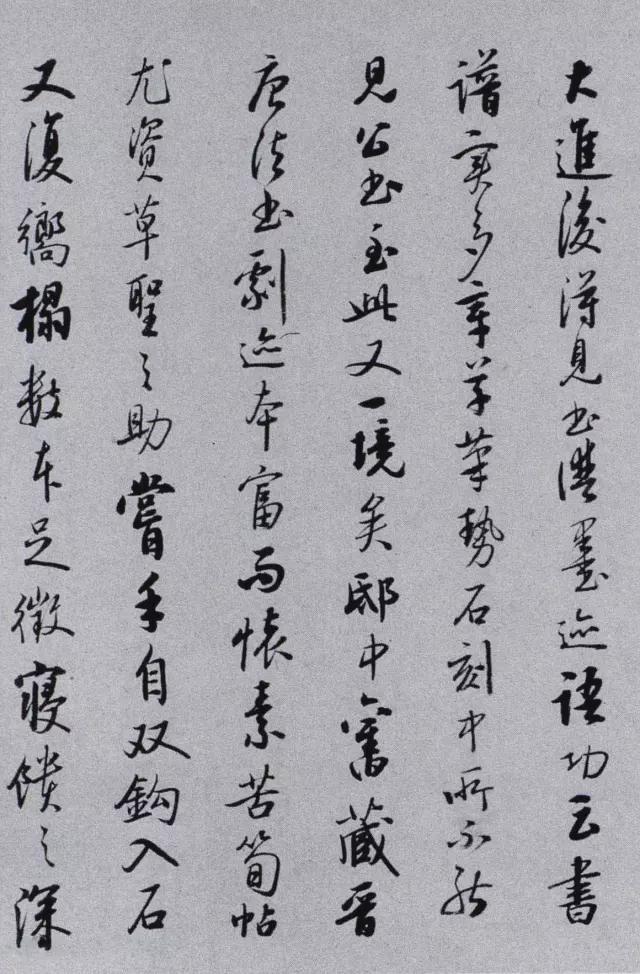 大進後得見書譜墨迹語功云書
譜实多章草筆勢石刻中所不能
見公书至此又一境矣邸中舊藏晉
唐法书劇迹本富而懷素苦筍帖
尤資草聖之助嘗手自双鈎入石
又復嚮榻数本足徵寝饋之深